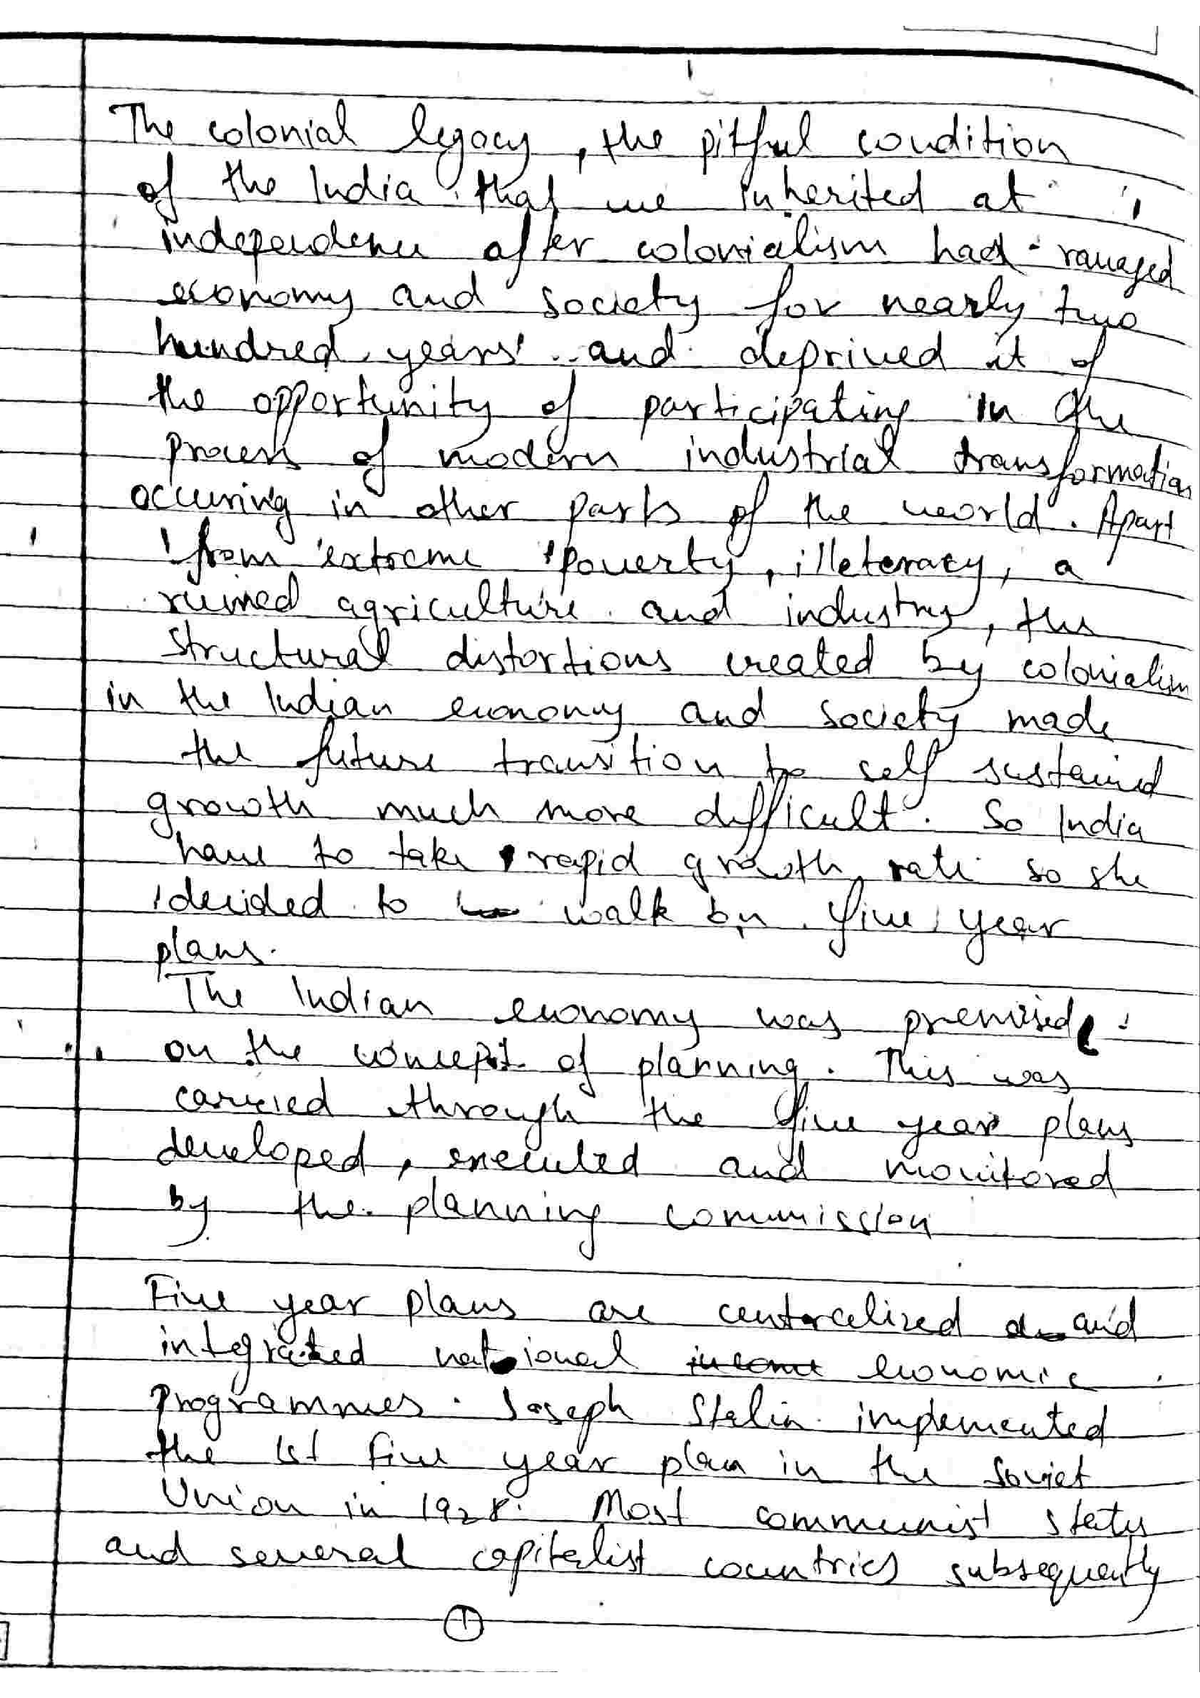 The colonial legacy, the pitful condition
of the India that we inherited at
independence after colonialism had ravaged
economy and society for nearly two
hundred years and deprived it of
the opportunity of participating in the
process of modern industrial transformation
occuring in other parts of the world. Apart
from extreme poverty, illeteracy, a
ruined agriculture and industry, the
structural distortions created by colonialism
in the Indian economy and society made
the future transition to self sustained
growth much more difficult. So India
have to take rapid growth rate so she
decided to walk on five year
plans.
The Indian economy was premised
on the concept of planning. This was
carried through the five year plans
developed, executed and monitored
by the planning commission
Five year plans are centralized and
integrated national income economic
Programmes. Joseph Stalin implemented
the 1st five year plan in the Soviet
Union in 1928. Most communist states
and several capitalist countries subsequently
1